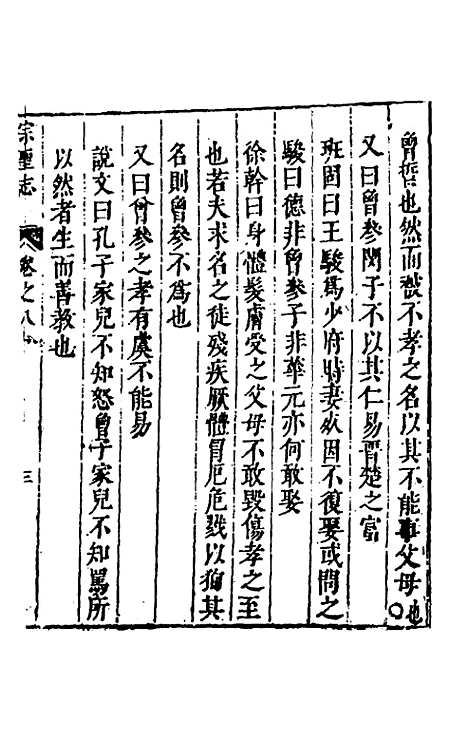 曾晳也然而蒙不孝之名以其不能事父母也
又曰曾參閔子不以其仁易晋楚之富
班固曰王駿爲少府時妻死因不復娶或問之
駿曰德非曾參子非華元亦何敢娶
徐幹曰身體髮膚受之父母不敢毀傷孝之至
也若夫求名之徒殘疾厥體冐厄危戮以狥其
名則曾參不爲也
又曰曾參之孝有虞不能易
說文曰孔子家兒不知怒曾子家兒不知罵所
以然者生而善教也
宗聖志
卷之八
三